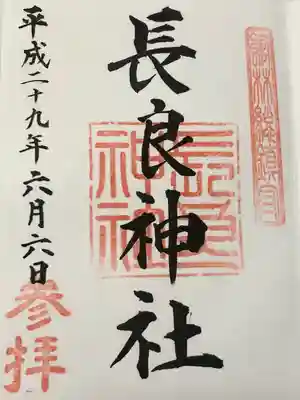 長良神社
平成二十九年六月六日
参拝
長良
神社